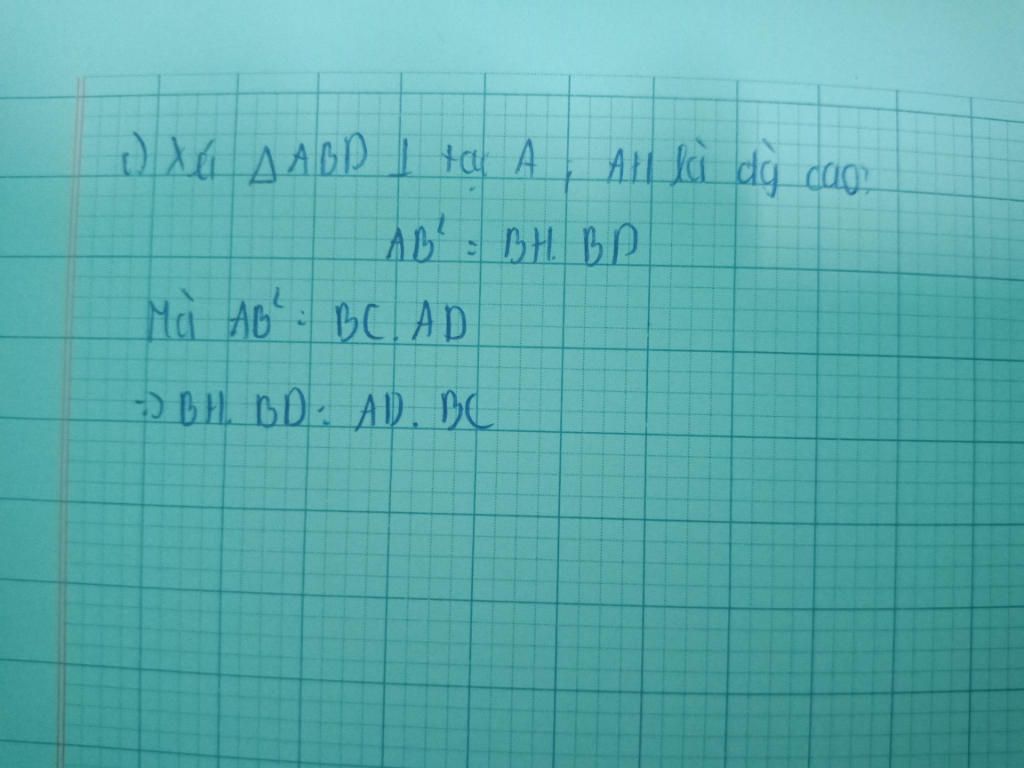 c) Xét Δ ABD ⊥ tại A, AH là đg cao:
AB² = BH. BD
Mà AB² = BC. AD
=> BH. BD = AD. BC